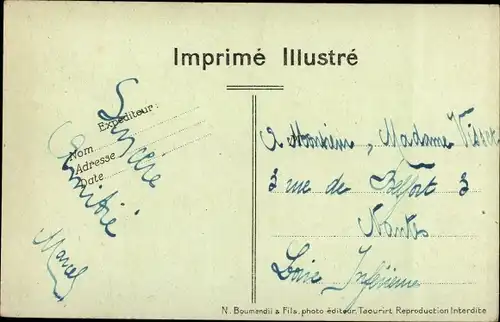 Imprimé Illustré
Expéditeur :
Nom
Adresse
Date
Sincère
Amitié
Marcel
A Monsieur, Madame
3 rue de Belfort 3
Nantes
Loire Inférieure
N. Boumendil & Fils, photo éditeur, Taourirt Reproduction Interdite